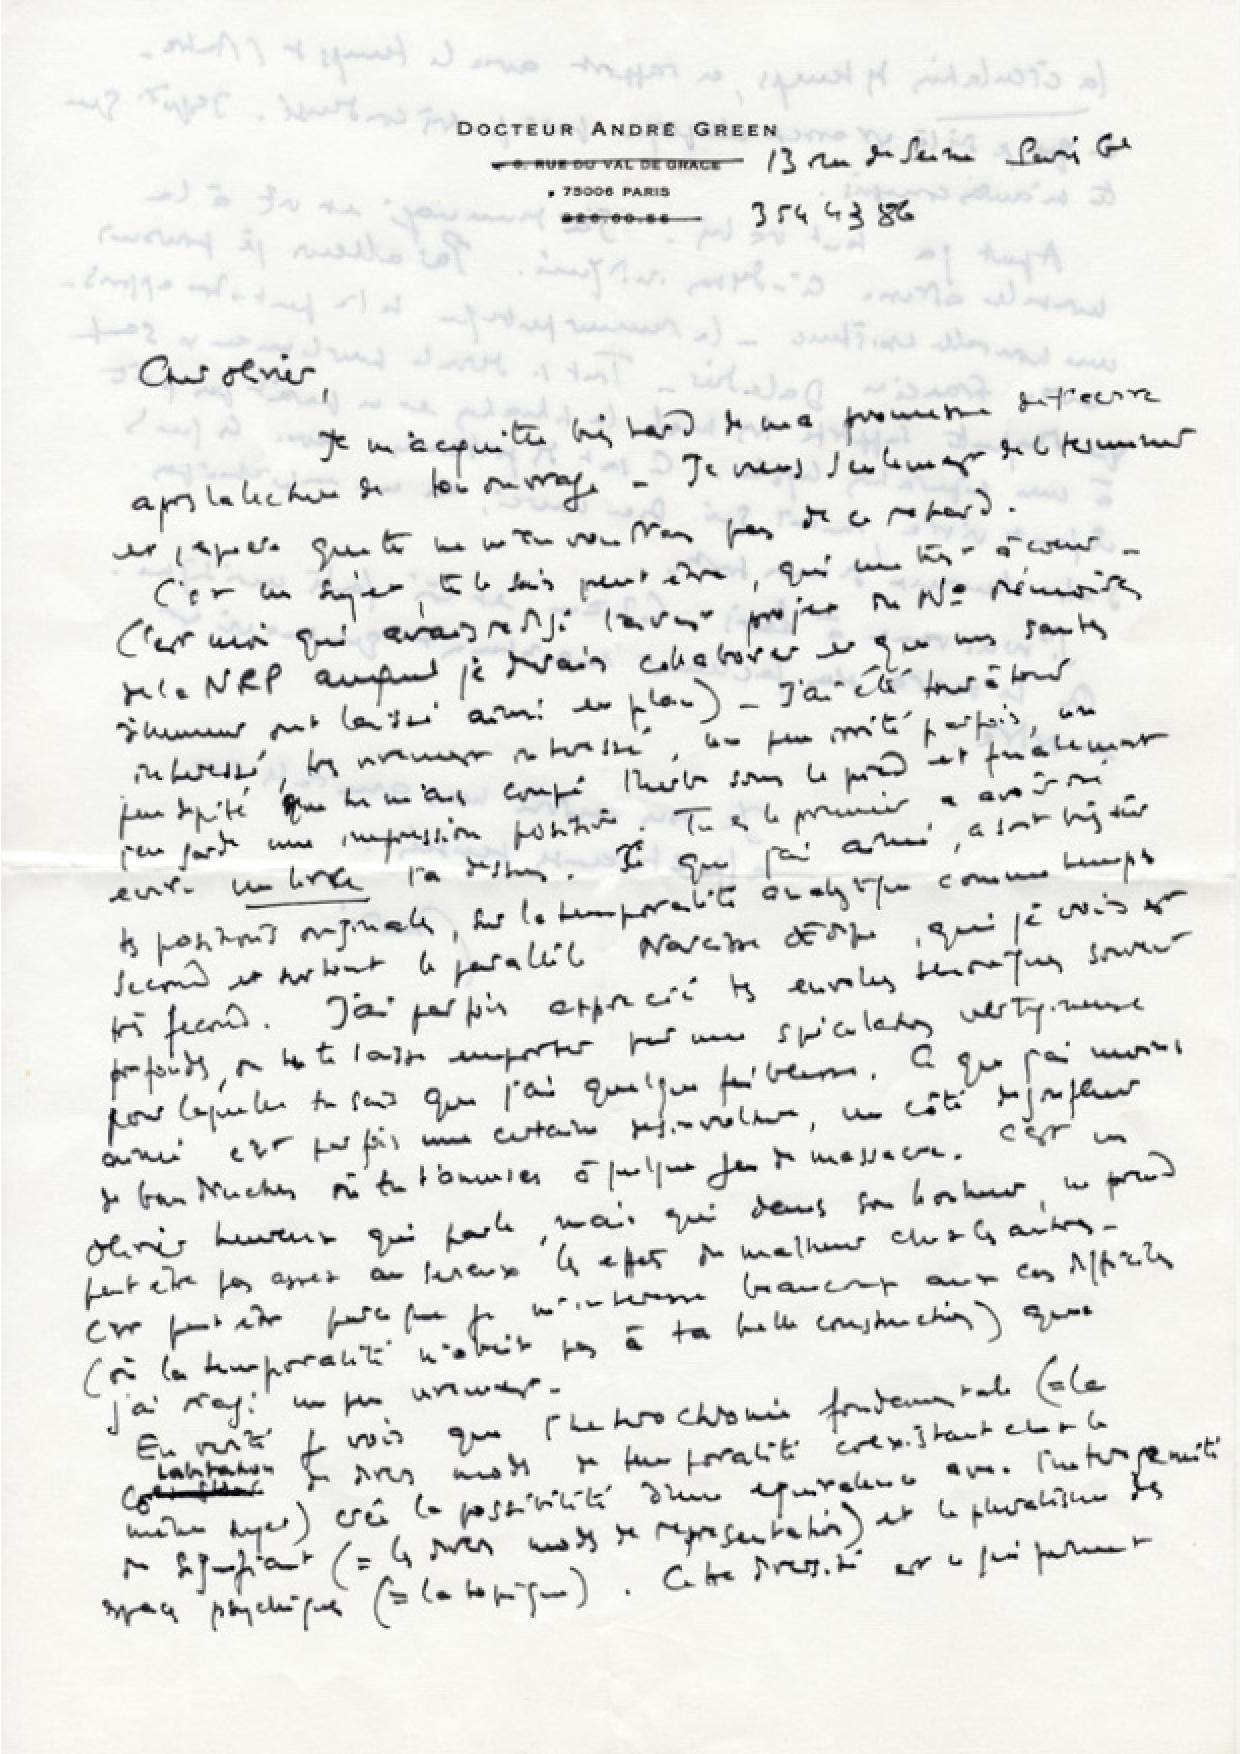 DOCTEUR ANDRÉ GREEN
9, RUE DU VAL DE GRACE 13 rue de Seine Paris 6e
75006 PARIS
326.00.56 354 43 86
Cher Olivier,
Je m'acquitte bien tard de ma promesse de t'écrire
après la lecture de ton ouvrage - Je viens seulement de le terminer
et j'espère que tu ne m'en voudras pas de ce retard.
C'est un sujet, tu le sais peut être, qui me tient à coeur -
(c'est moi qui avais rédigé l'avant projet du No Mémoires
de la NRP auquel je devais collaborer et que mes sautes
d'humeur ont laissé ainsi en plan) - J'ai été tour à tour
intéressé, très vivement intéressé, un peu irrité parfois, un
peu dépité que tu m'aies coupé l'herbe sous le pied et finalement
j'en garde une impression positive. Tu es le premier à avoir osé
écrire un livre là dessus. Ce que j'ai aimé, ce sont bien sûr
tes positions originales, sur la temporalité analytique comme temps
second et surtout le parallèle Narcisse Oedipe, que je crois
très fécond. J'ai parfois apprécié tes envolées théoriques souvent
profondes, où tu te laisse emporter par une spéculation vertigineuse
pour laquelle tu sais que j'ai quelque faiblesse. Ce que j'ai moins
aimé c'est parfois une certaine désinvolture, un côté dégonfleur
de baudruches où tu t'amuses à quelque jeu de massacre. C'est un
Olivier heureux qui parle, mais qui dans son bonheur, ne prend
peut être pas assez au sérieux les effets du malheur chez les autres -
C'est peut être parce que je m'intéresse beaucoup aux cas difficiles
(où la temporalité n'obéit pas à ta belle construction) que
j'ai réagi un peu vivement -
En vérité je crois que l'hétérochronie fondamentale (= la
cohabitation de divers modes de temporalité coexistant chez le
même sujet) crée la possibilité d'une équivalence avec l'hétérogénéité
du signifiant (= les divers modes de représentation) et le pluralisme des
espaces psychiques (= la topique). Cette diversité est ce qui permet